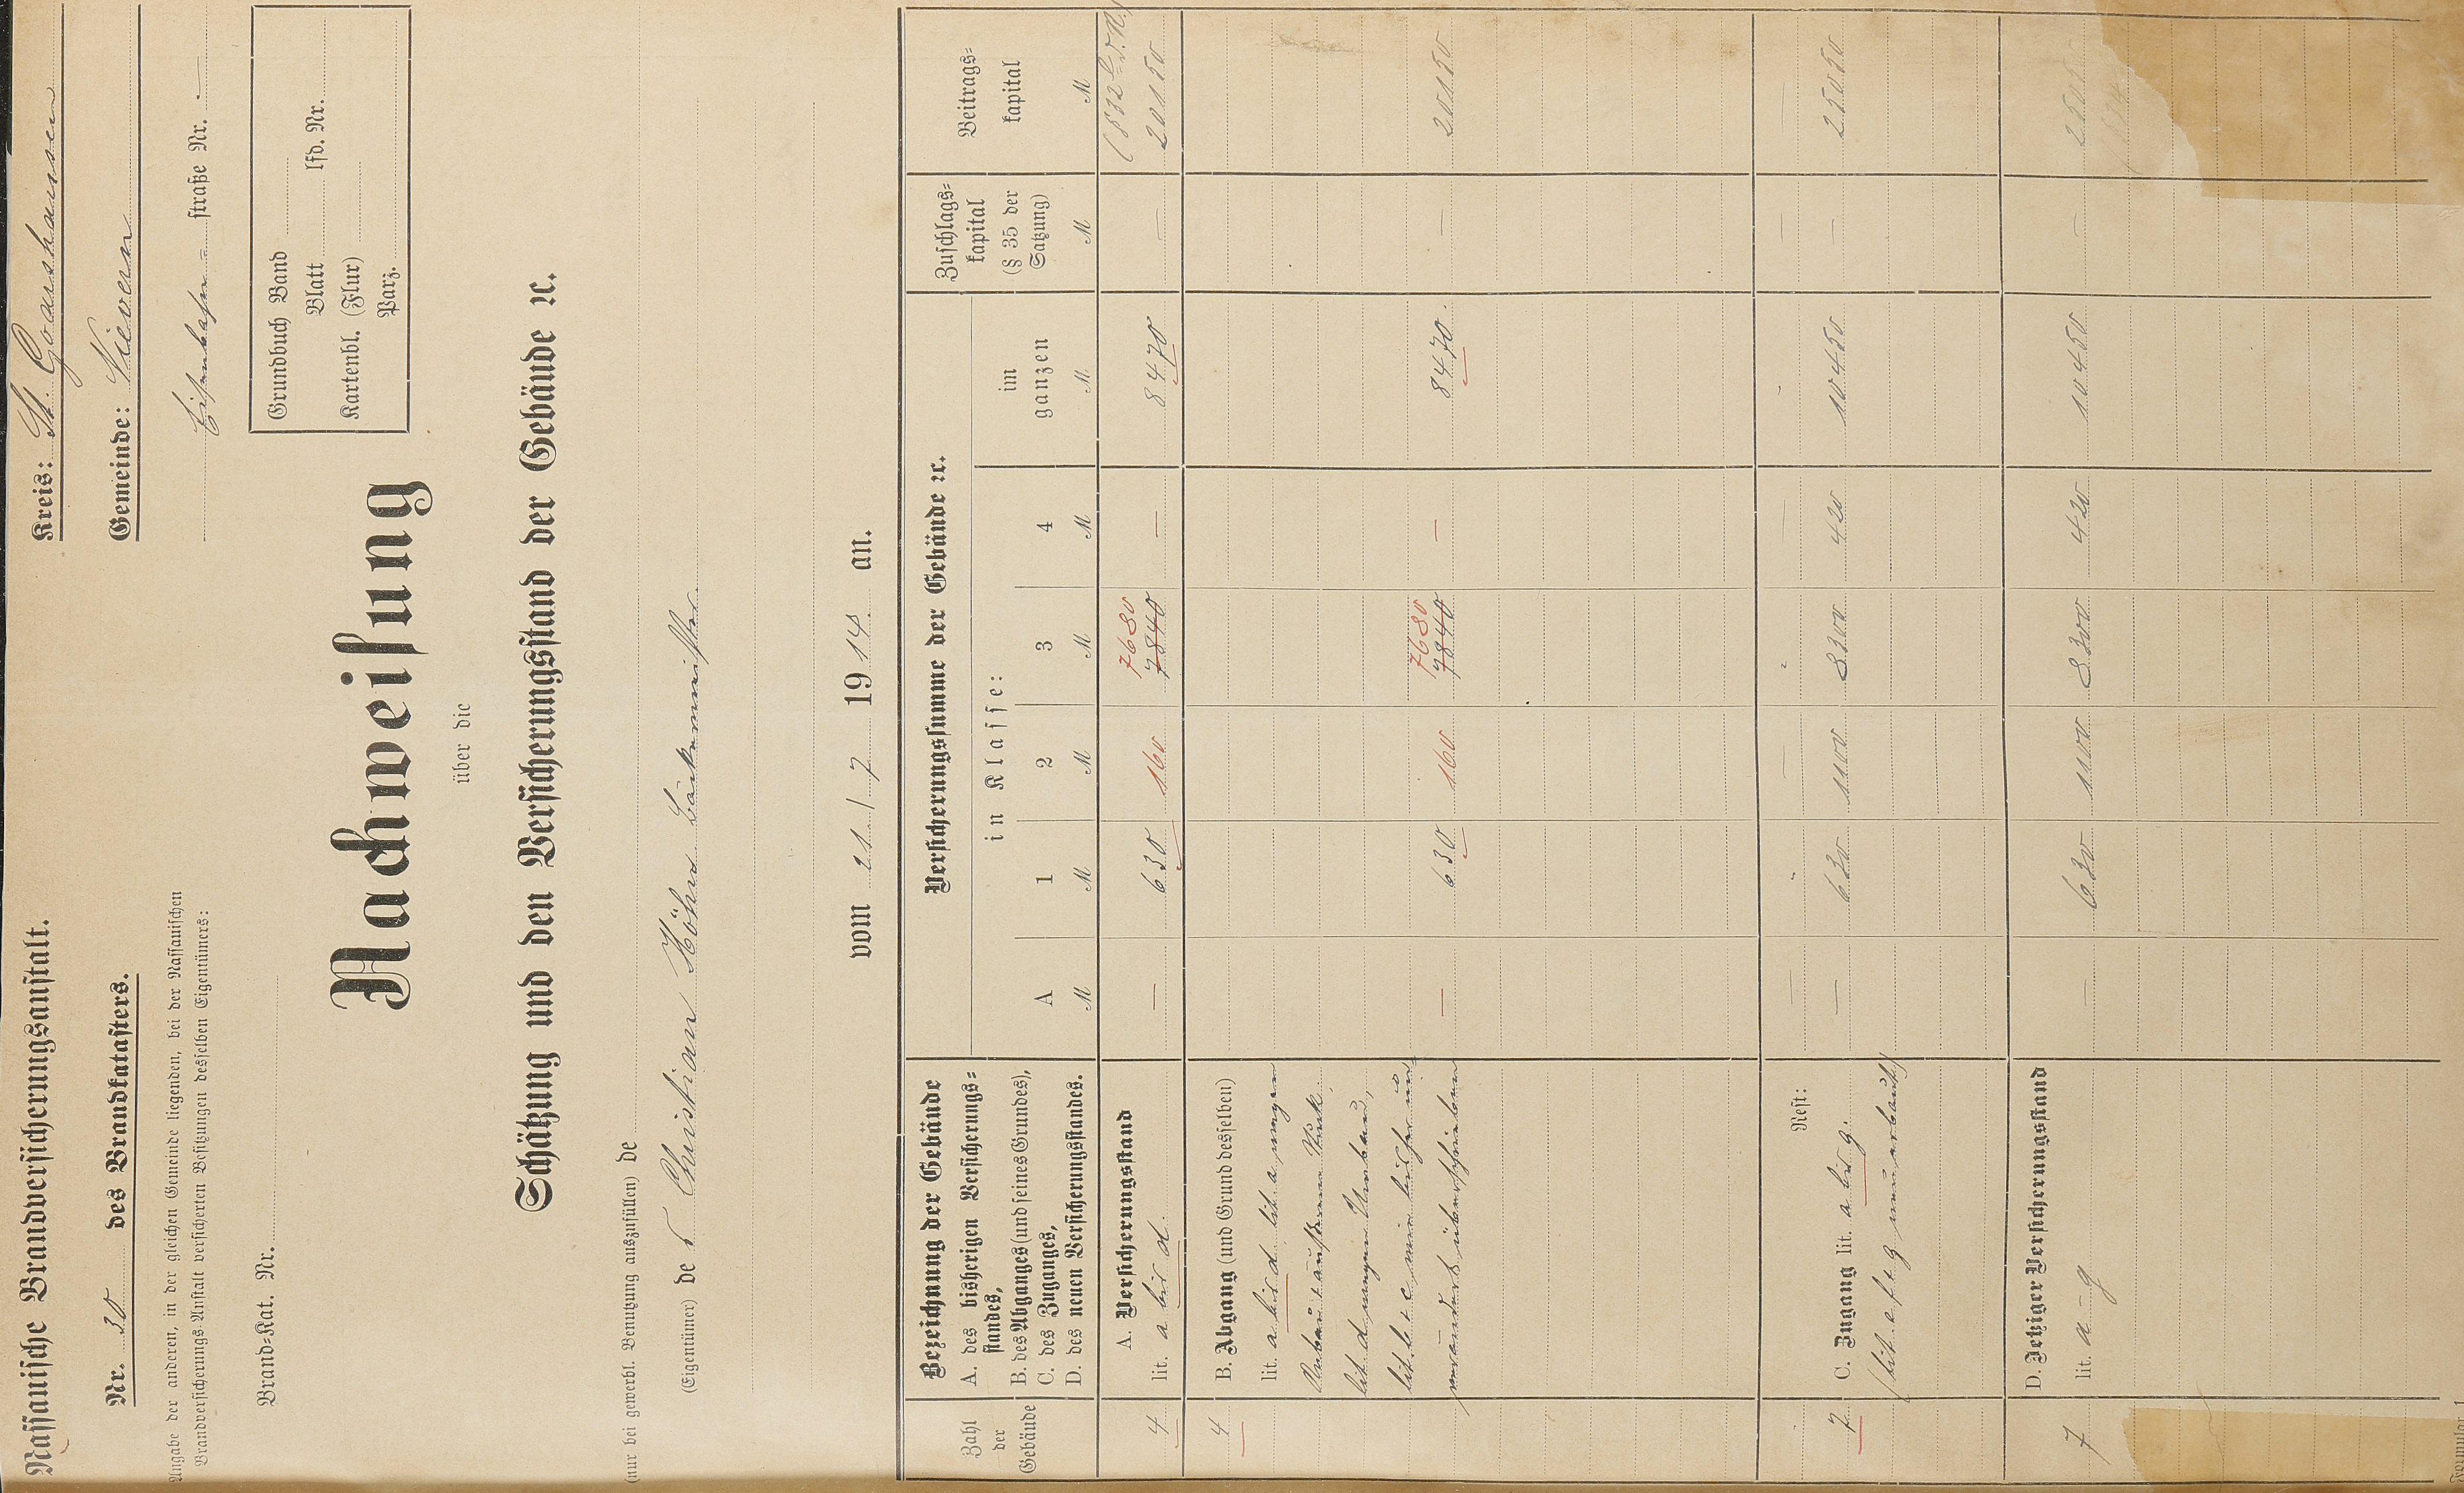 Nassauische Brandversicherungsanstalt.
Nr. 30 des Brandkatasters.
Angabe der anderen, in der gleichen Gemeinde liegenden, bei der Nassauischen
Brandversicherungs-Anstalt versicherten Besitzungen desselben Eigentümers:
Brand-Kat. Nr.
Kreis: St. Goarshausen
Gemeinde: Nievern
Eisenbahn- straße Nr. —
Grundbuch Band
Blatt lfd. Nr.
Kartenbl. (Flur)
Parz.
Nachweisung
über die
Schätzung und den Versicherungsstand der Gebäude ꝛc.
(nur bei gewerbl. Benutzung auszufüllen) de
(Eigentümer) de s Christian Höhn Bäckermeister
vom 21/7 1914 an.
Zahl der Gebäude
Bezeichnung der Gebäude
A. des bisherigen Versicherungs=
standes,
B. des Abganges (und seines Grundes),
C. des Zuganges,
D. des neuen Versicherungsstandes.
Versicherungssumme der Gebäude ꝛc.
in Klasse:
A 1 2 3 4
im ganzen
M M M M M M
Zuschlags=
kapital
(§ 35 der
Satzung)
M
Beitrags=
kapital
M
A. Versicherungsstand 7680
4 lit. a bis d. — 630 160 7840 — 8470 — 20150
4 B. Abgang (und Grund desselben)
lit. a bis d lit. a wegen
lit. d wegen Umbaus,
7680
630 160 7840 — 8470. — 20150
Rest: — — — —
7 C. Zugang lit. a bis g. — 630 1100 8300 420 10450 — 25050
(lit. e f & g neu erbaut)
D. Jetziger Versicherungsstand
7 lit. a-g — 630 1100 8300 420 10450 — 25050
Formular 1